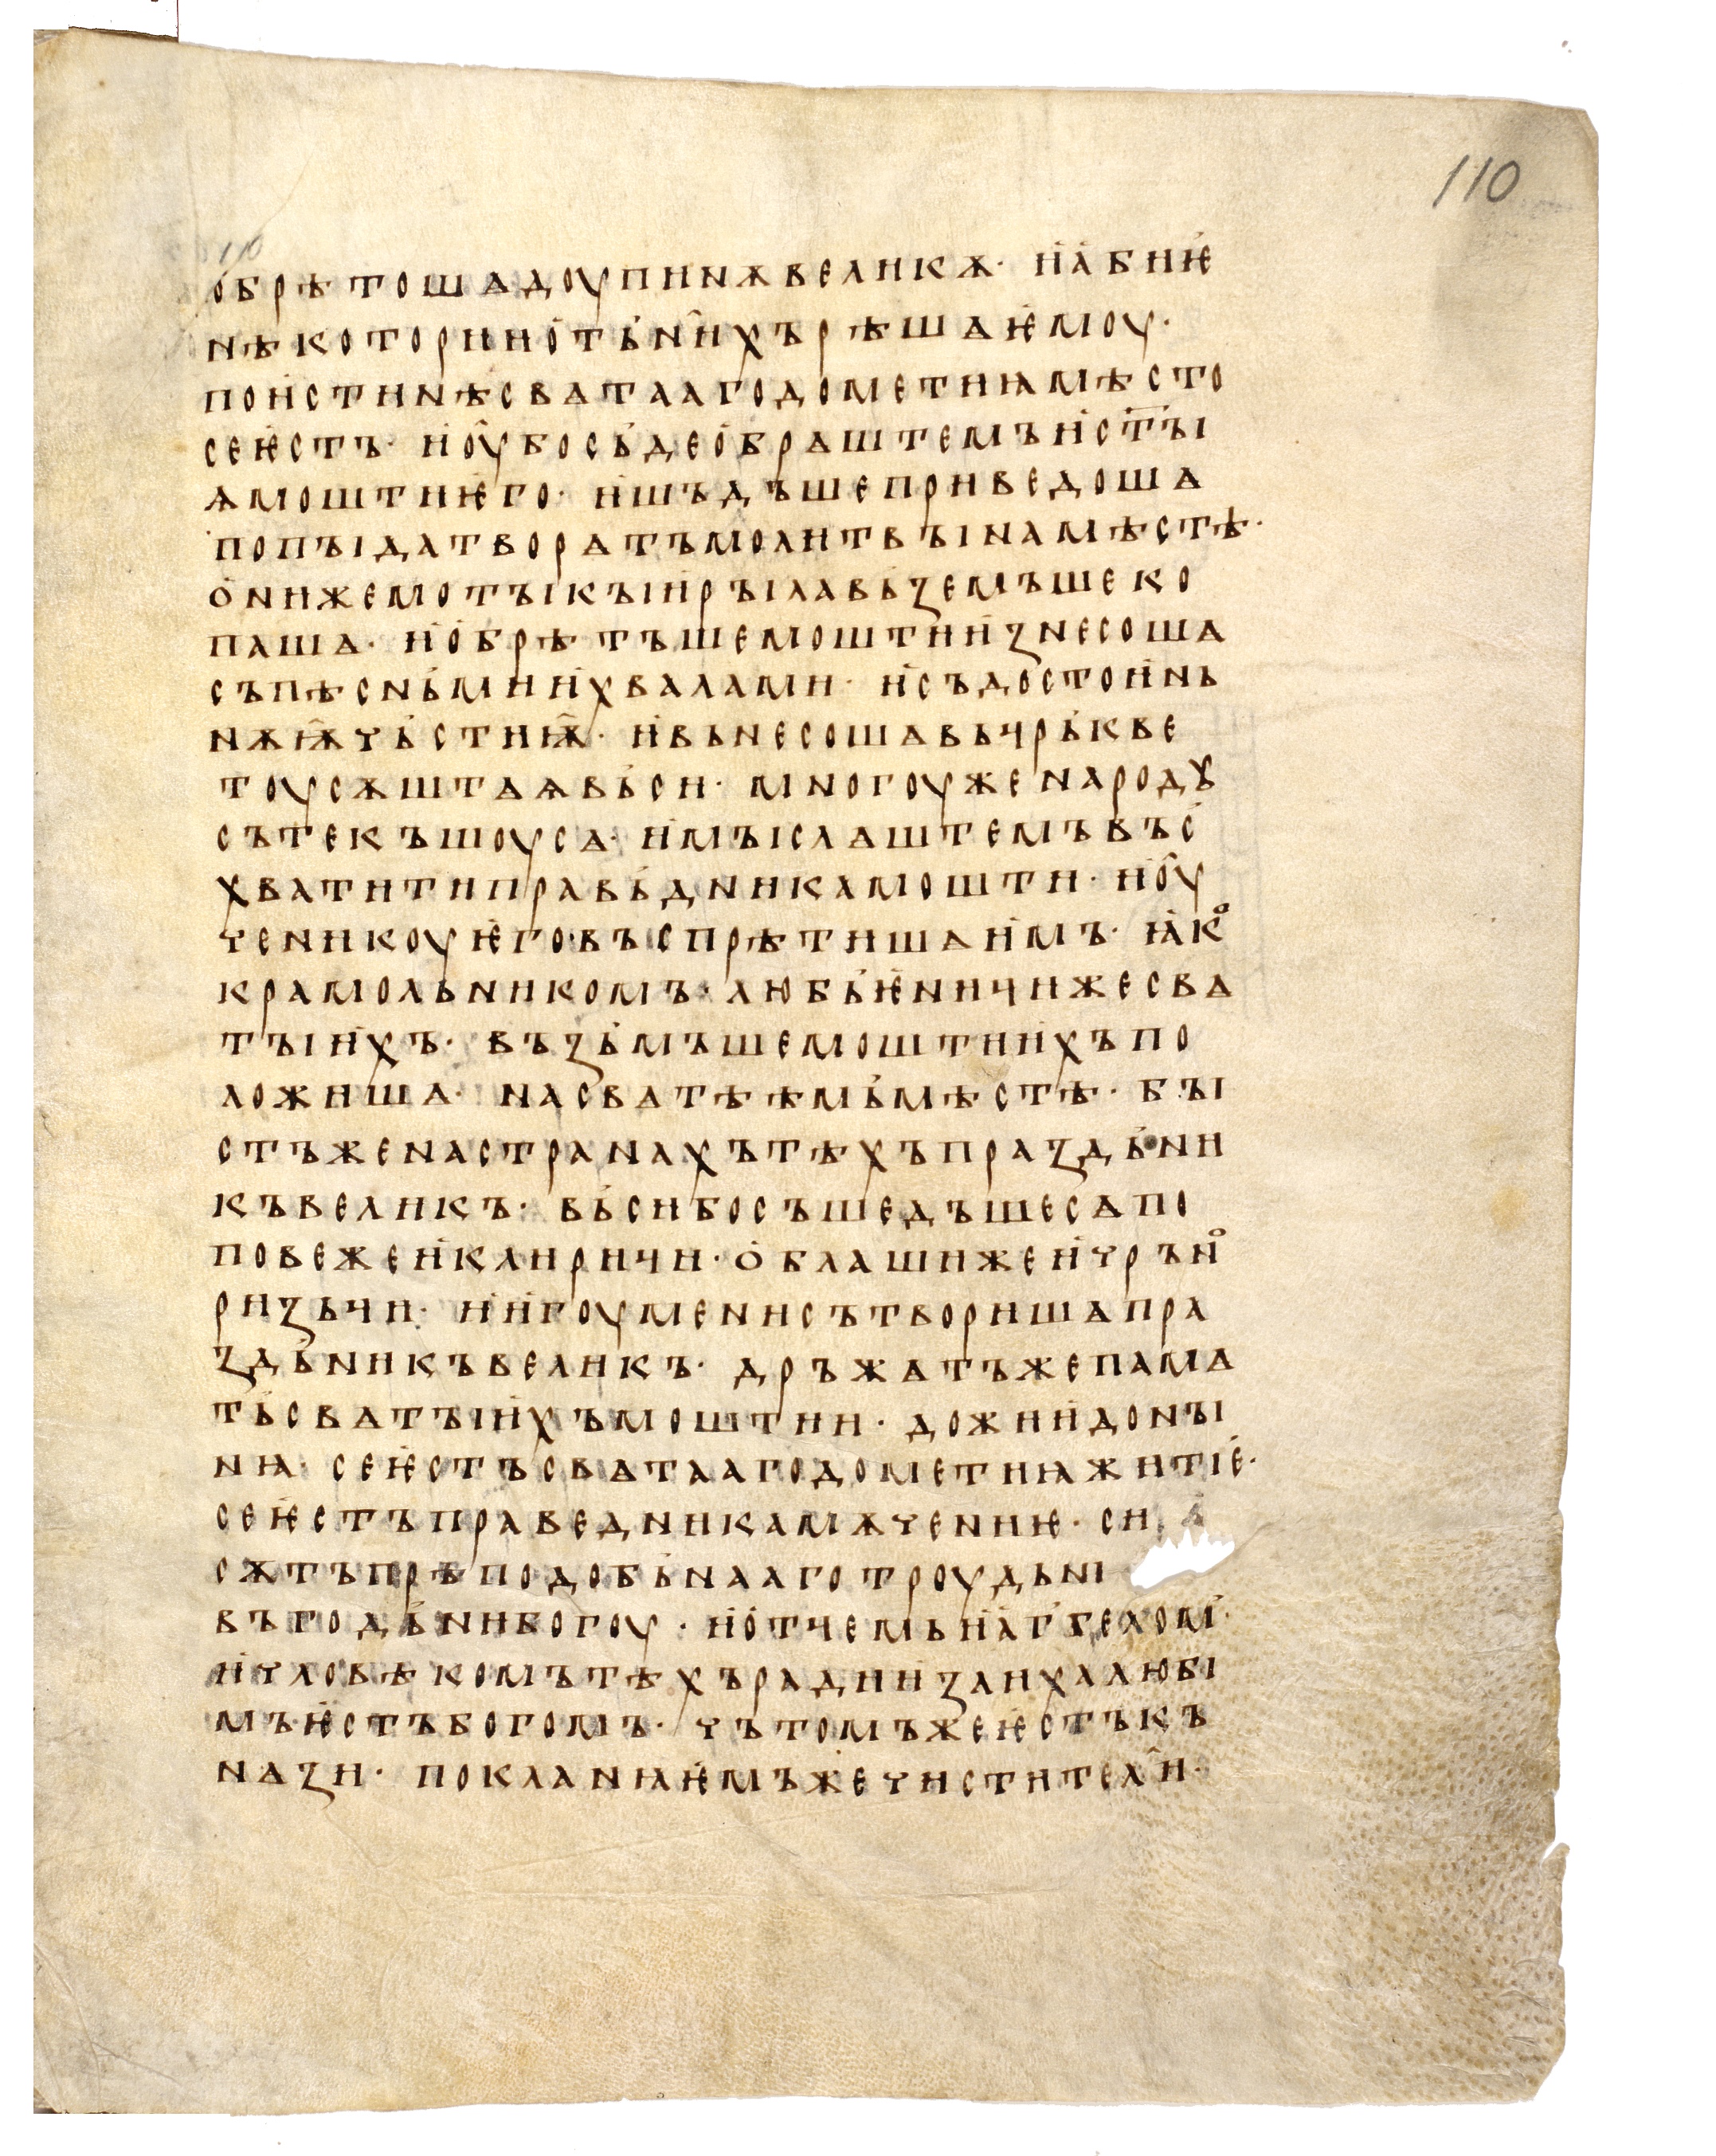 110
110
обрѣтошѧдоупинѫвеликѫ· иабиѥ
нѣкоториіотъниꙿхърѣшѧѥмоу·
поистинѣсвѧтааагодометиꙗмѣсто
сеѥстъ· иоубосьдеобраштемъистꙑ
ѩмоштиѥго· ишъдъшеприведоша
попꙑдатворѧтъмолитвꙑнамѣстѣ·
онижемотꙑкꙑирꙑлавьꙁемъшеко
паша· иобрѣтъшемоштииꙁнесоша
съпѣсньмиихвалами· исъдостоинь
нѫѭчьстиѭ· ивьнесошѧвьчрькве
тоусѫштаѩвьси· многоуженародꙋ
сътекъшоусѧ· имꙑслѧштемъвъс
хватитиправьдникамошти· ноу
ченикоуѥговъспрѣтишѧимъ· ꙗко
крамольникомъ· любьѥничижесвѧ
тꙑихъ· въꙁьмъшемоштиихъпо
ложишѧ· насвѧтѣѣмьмѣстѣ· бꙑ
стъженастранахътѣхъпраꙁдьни
къвеликъ· вьсибосъшедъшесѧпо
повежеиклиричи· облашижеичръно
риꙁьчи· иигоуменисътворишѧпра
ꙁдьникъвеликъ· дръжѧтъжепамѧ
тьсвѧтꙑихъмоштии· дожиидонꙑ
нꙗ· сеѥстъсвѧтаагодометиꙗжитіе·
сеѥстъправедникамѫчениѥ· си
сѫтъпрѣподобьнааготроудьні
въгодьнибогоу· иотчемьнаггелом·
ичловѣкомътѣхърадииꙁлихалюбі
мъѥстъбогомъ· чътомъжеѥстъкъ
наꙁи· покланꙗѥмъжечистители·